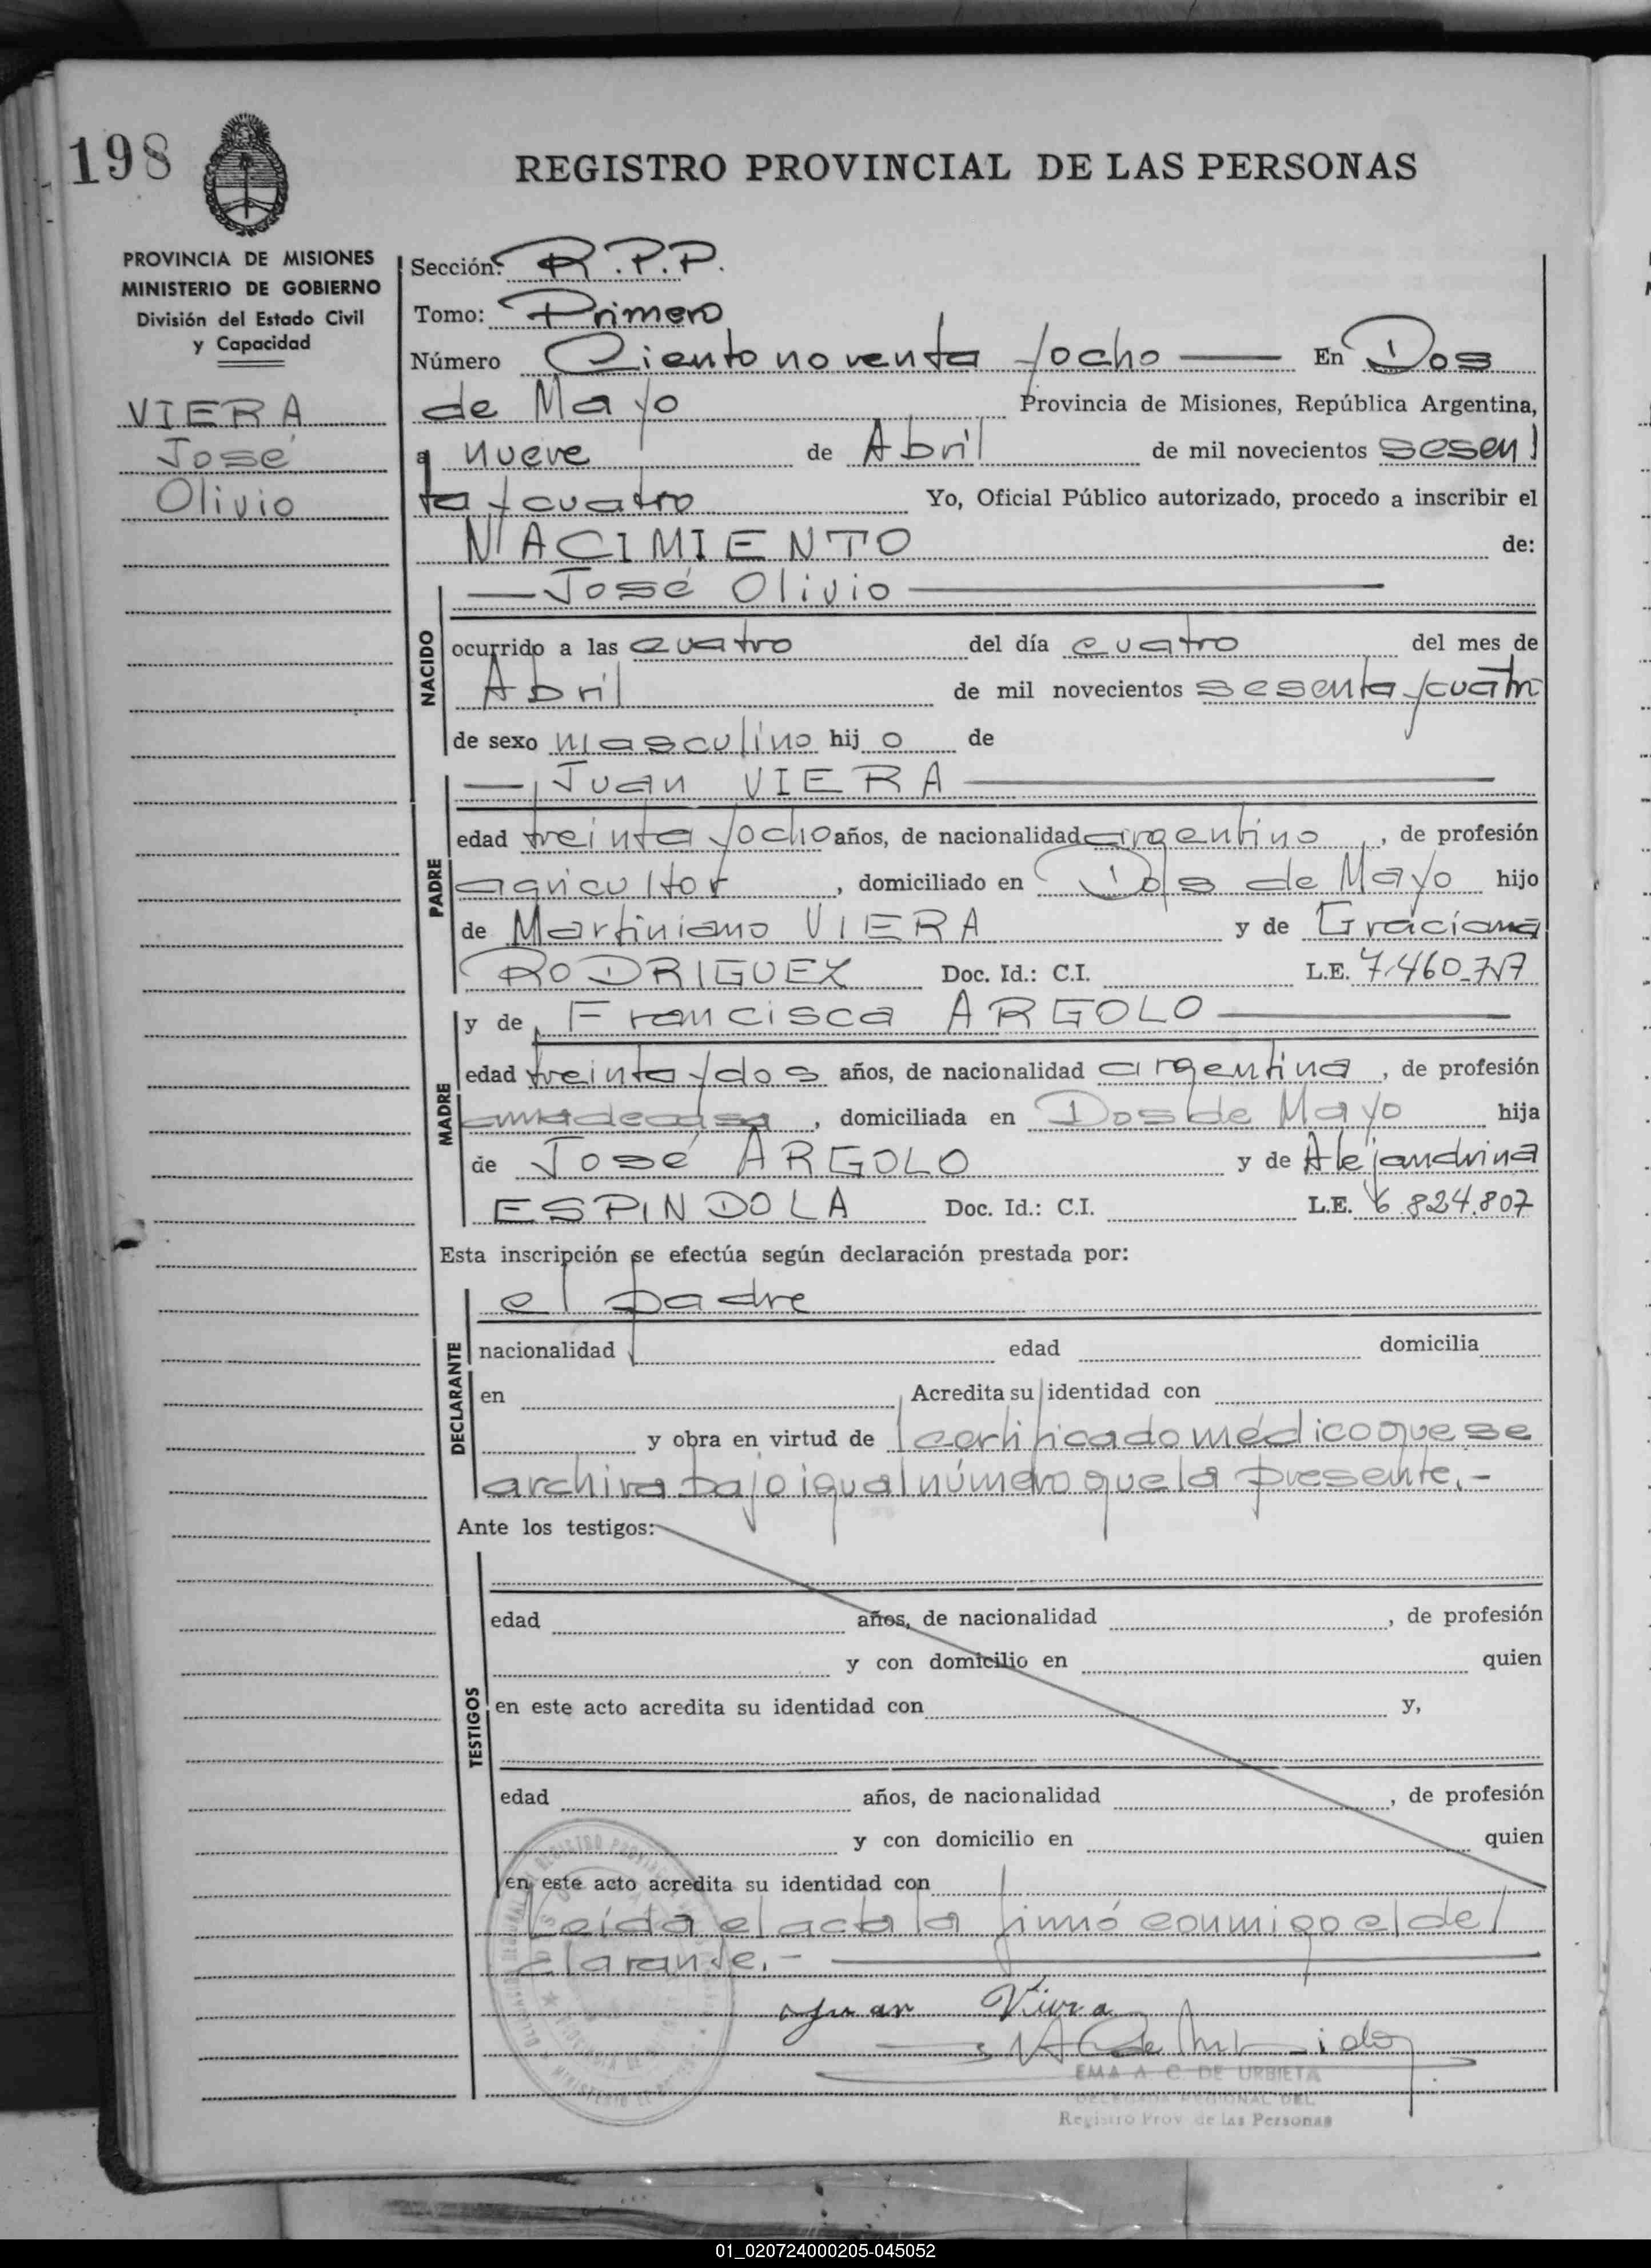 198
REGISTRO PROVINCIAL DE LAS PERSONAS
PROVINCIA DE MISIONES
MINISTERIO DE GOBIERNO
División del Estado Civil
y Capacidad
VIERA
José
Olivio
Sección: R.P.P.
Tomo: Primero
Número Ciento noventa y ocho En Dos
de Mayo Provincia de Misiones, República Argentina,
a nueve de Abril de mil novecientos sesen
ta y cuatro Yo, Oficial Público autorizado, procedo a inscribir el
NACIMIENTO de:
José Olivio
NACIDO
ocurrido a las cuatro del día cuatro del mes de
Abril de mil novecientos sesenta y cuatro
de sexo masculino hij o de
Juan VIERA
PADRE
edad treinta y ocho años, de nacionalidad argentino, de profesión
agricultor, domiciliado en Dos de Mayo hijo
de Martiniano VIERA y de Graciana
RODRIGUEZ Doc. Id.: C.I. L.E.
y de Francisca ARGOLO
MADRE
edad treinta y dos años, de nacionalidad argentina, de profesión
ama de casa, domiciliada en Dos de Mayo hija
de José ARGOLO y de Alejandrina
ESPINDOLA Doc. Id.: C.I. L.E. 6.824.807
Esta inscripción se efectúa según declaración prestada por:
el padre
DECLARANTE
nacionalidad edad domicilia
en Acredita su identidad con
y obra en virtud de certificado médico que se
archiva bajo igual número que la presente.-
Ante los testigos:
TESTIGOS
edad años, de nacionalidad , de profesión
y con domicilio en quien
en este acto acredita su identidad con y,
edad años, de nacionalidad , de profesión
y con domicilio en quien
en este acto acredita su identidad con
Leída el acta la firmó conmigo el de
clarante.-
Juan Viera
EMA A. C. DE URBIETA
DELEGADA REGIONAL DEL
Registro Prov. de las Personas
01_020724000205-045052